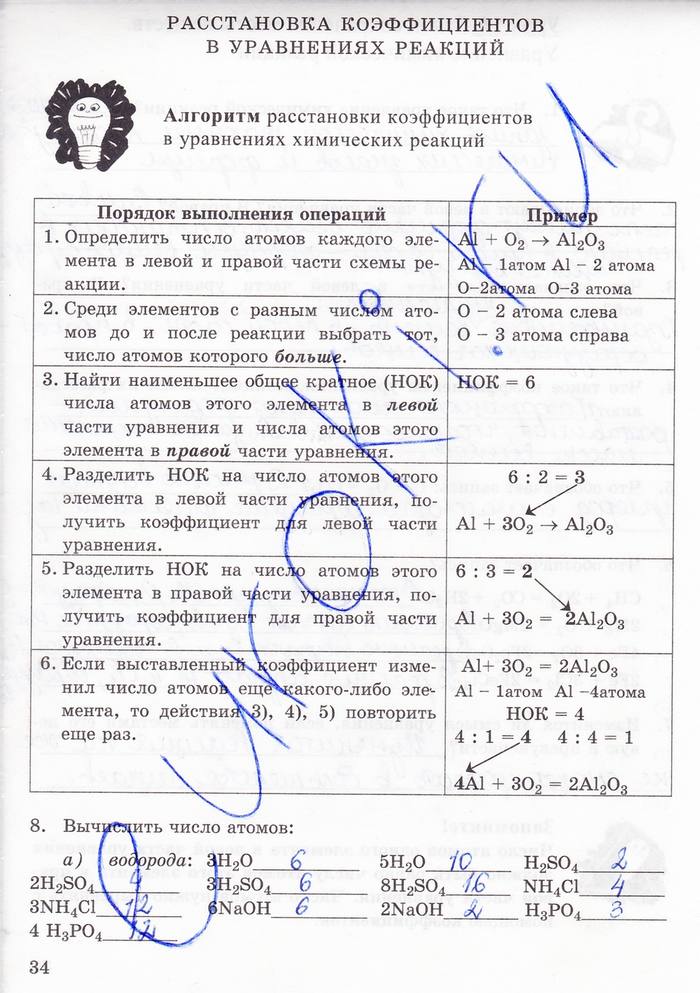 РАССТАНОВКА КОЭФФИЦИЕНТОВ
В УРАВНЕНИЯХ РЕАКЦИЙ
Алгоритм расстановки коэффициентов
в уравнениях химических реакций
Порядок выполнения операций
Пример
1. Определить число атомов каждого эле-
мента в левой и правой части схемы ре-
акции.
Al + O₂ → Al₂O₃
Al – 1атом Al – 2 атома
O–2атома O–3 атома
2. Среди элементов с разным числом ато-
мов до и после реакции выбрать тот,
число атомов которого больше.
O – 2 атома слева
O – 3 атома справа
3. Найти наименьшее общее кратное (НОК)
числа атомов этого элемента в левой
части уравнения и числа атомов этого
элемента в правой части уравнения.
НОК = 6
4. Разделить НОК на число атомов этого
элемента в левой части уравнения, по-
лучить коэффициент для левой части
уравнения.
6 : 2 = 3
Al + 3O₂ → Al₂O₃
5. Разделить НОК на число атомов этого
элемента в правой части уравнения, по-
лучить коэффициент для правой части
уравнения.
6 : 3 = 2
Al + 3O₂ = 2Al₂O₃
6. Если выставленный коэффициент изме-
нил число атомов еще какого-либо эле-
мента, то действия 3), 4), 5) повторить
еще раз.
Al+ 3O₂ = 2Al₂O₃
Al – 1атом Al –4атома
НОК = 4
4 : 1 = 4 4 : 4 = 1
4Al + 3O₂ = 2Al₂O₃
8. Вычислить число атомов:
а) водорода: 3H₂O 6 5H₂O 10 H₂SO₄ 2
2H₂SO₄ 4 3H₂SO₄ 6 8H₂SO₄ 16 NH₄Cl 4
3NH₄Cl 12 6NaOH 6 2NaOH 2 H₃PO₄ 3
4 H₃PO₄ 12
34